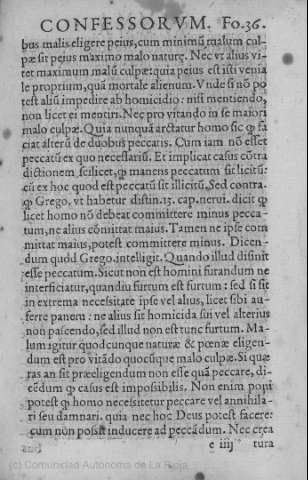 CONFESSORVM. Fo.36.
bus malis eligere peius, cum minimū malum cul-
pæ sit peius maximo malo naturę. Nec vt alius vi-
tet maximum malū culpæ: quia peius est isti venia
le proprium, quā mortale alienum. Vnde si nō po
test aliū impedire ab homicidio: nisi mentiendo,
non licet ei mentiri. Nec pro vitando in se maiori
malo culpæ. Quia nunquā arctatur homo sic ꝙ fa
ciat alterū de duobus peccatis. Cum iam nō esset
peccatū ex quo necessariū. Et implicat casus cōtra
dictionem, scilicet, ꝙ manens peccatum sic licitū:
cū ex hoc quod est peccatū sit illicitū. Sed contra.
ꝙ Grego. vt habetur distin. 13. cap. nerui. dicit ꝙ
licet homo nō debeat committere minus pecca-
tum, ne alius cōmittat maius. Tamen ne ipse com
mittat maius, potest committere minus. Dicen-
dum quòd Grego. intelligit. Quando illud disinit
esse peccatum. Sicut non est homini furandum ne
interficiatur, quandiu furtum est furtum: sed si sit
in extrema necessitate ipse vel alius, licet sibi au-
ferre panem: ne alius sit homicida sui vel alterius
non pascendo, sed illud non est tunc furtum. Ma-
lum igitur quodcunque naturæ & pœnæ eligen-
dum est pro vitādo quocūque malo culpæ. Si quæ
ras an sit præeligendum non esse quā peccare, di-
cēdum ꝙ casus est impossibilis. Non enim poni
potest ꝙ homo necessitetur peccare vel annihila-
ri seu damnari. quia nec hoc Deus potest facere:
cum non possit inducere ad peccādum. Nec crea
e iiij tura
(c) Comunidad Autónoma de La Rioja